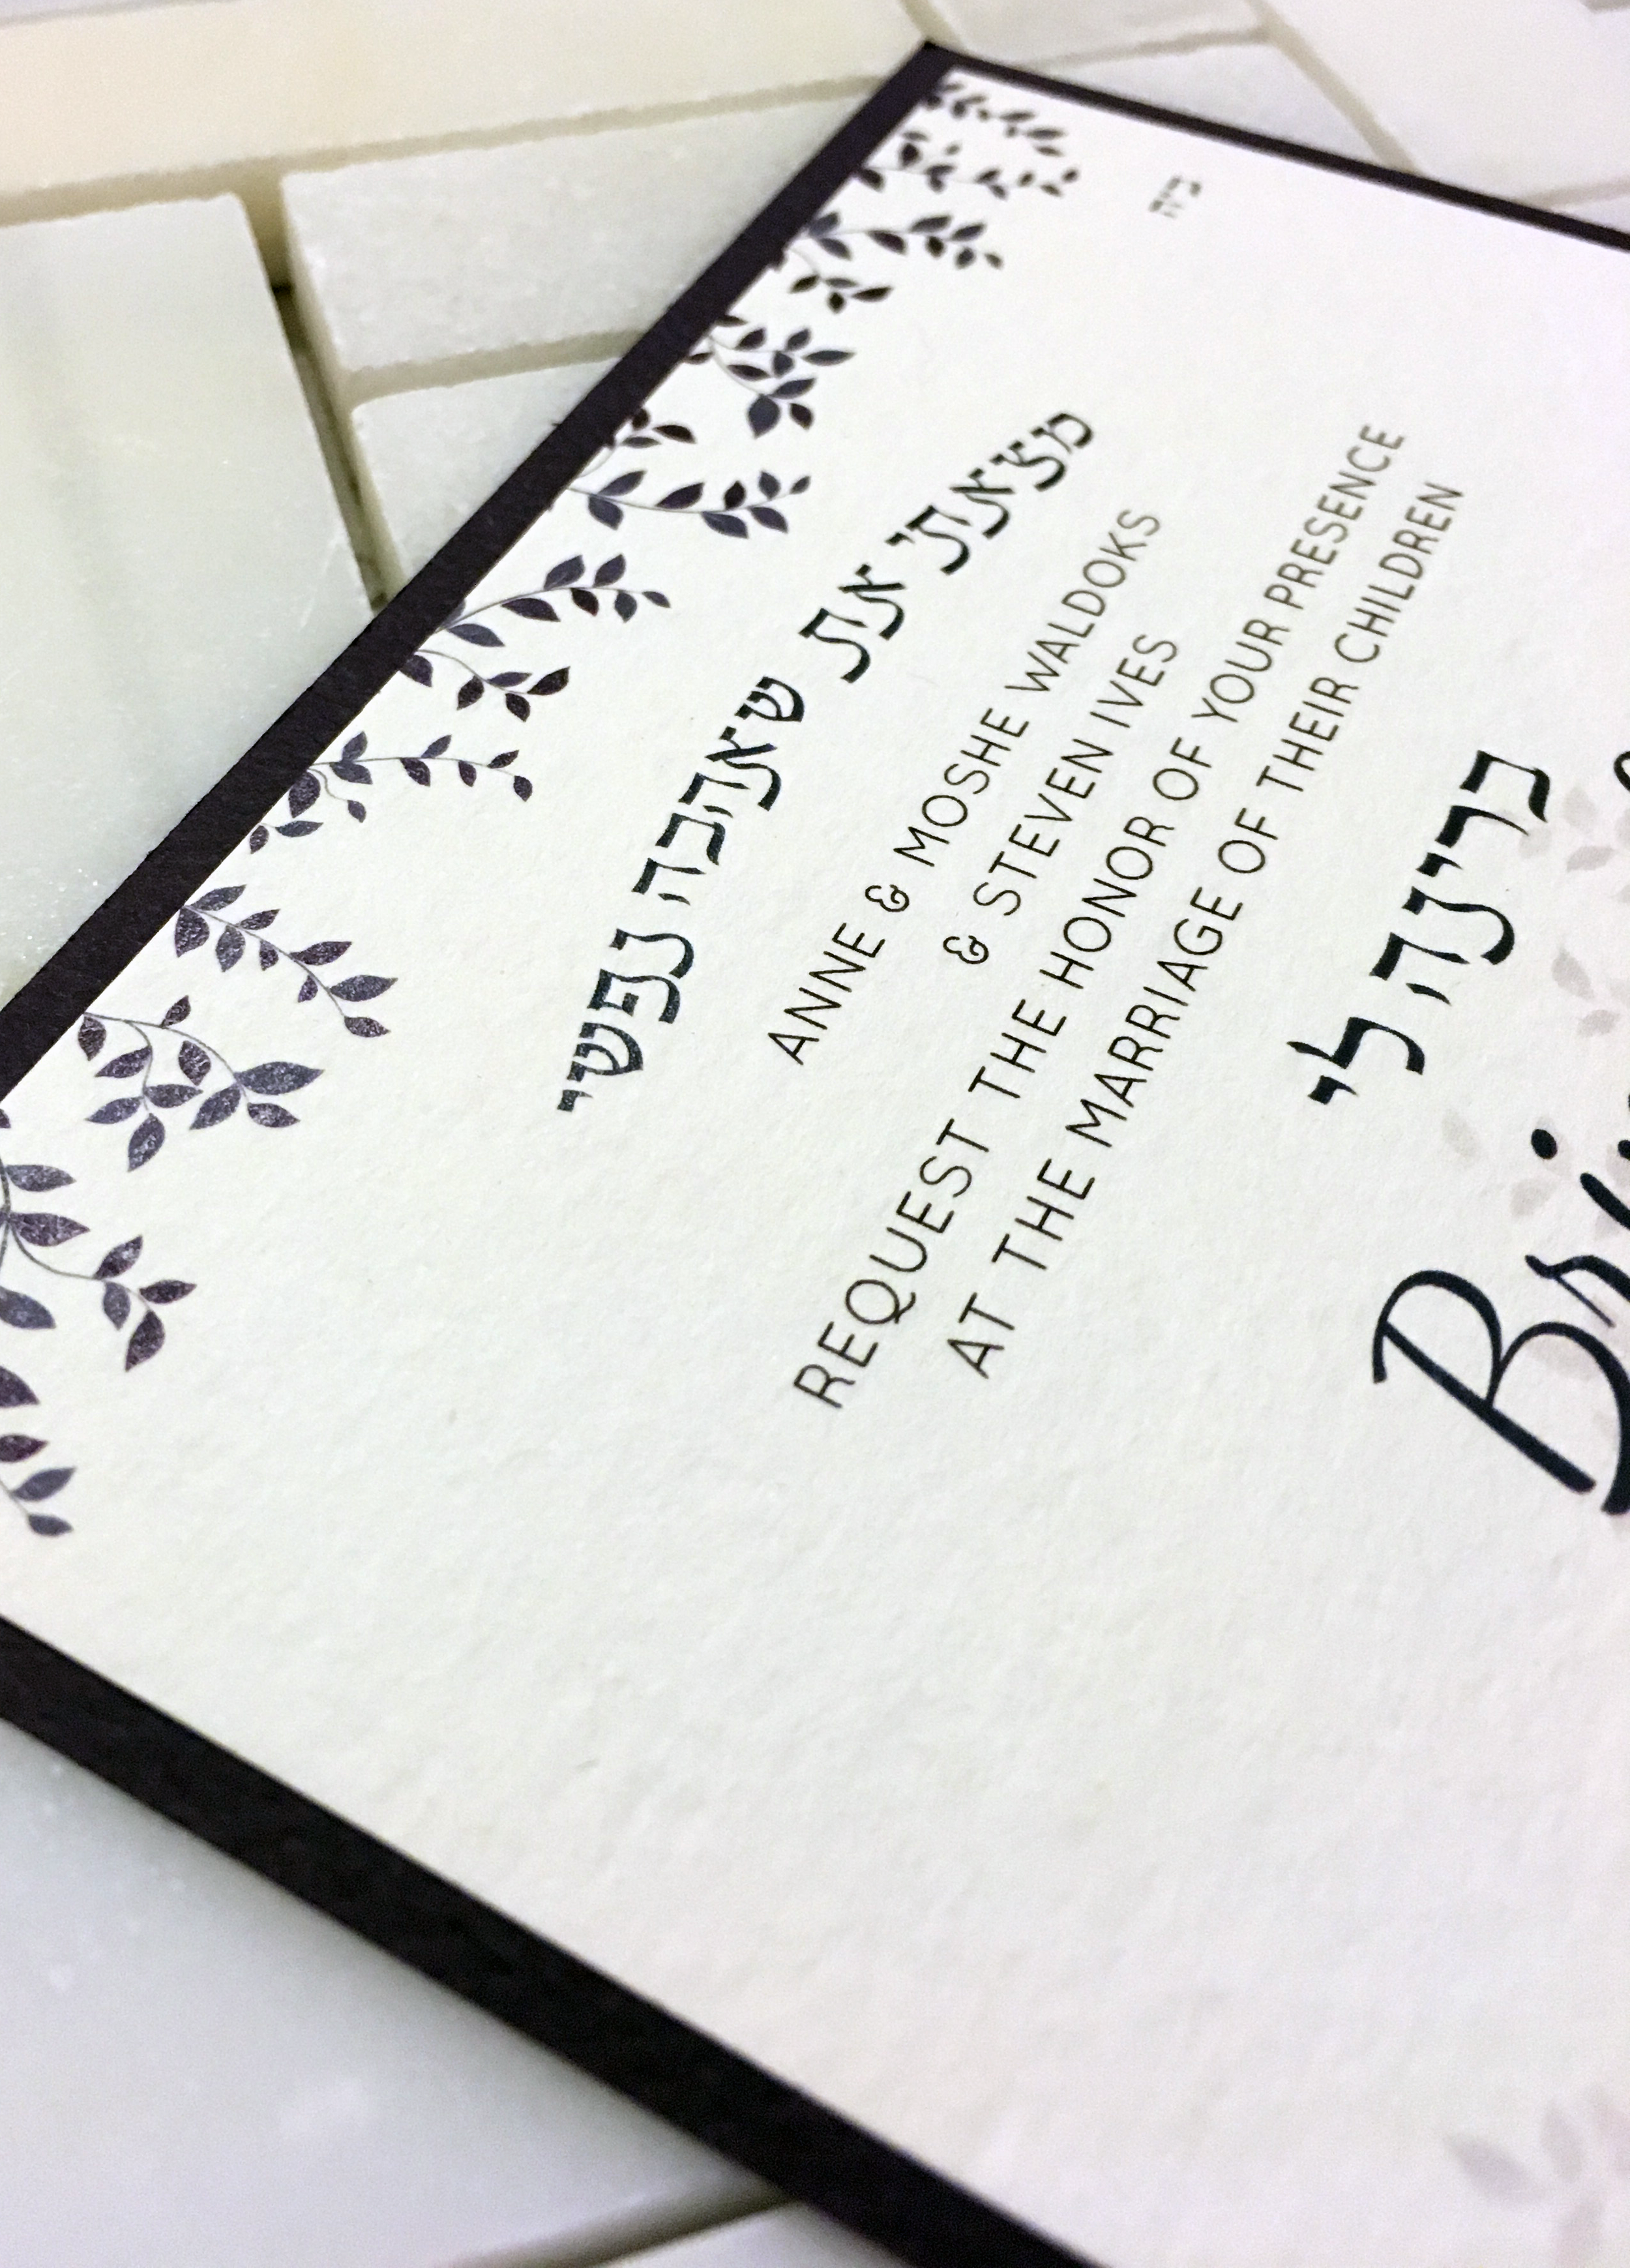 ב״ה
מצאתי את שאהבה נפשי
ANNE & MOSHE WALDOKS
& STEVEN IVES
REQUEST THE HONOR OF YOUR PRESENCE
AT THE MARRIAGE OF THEIR CHILDREN
ברינה לי